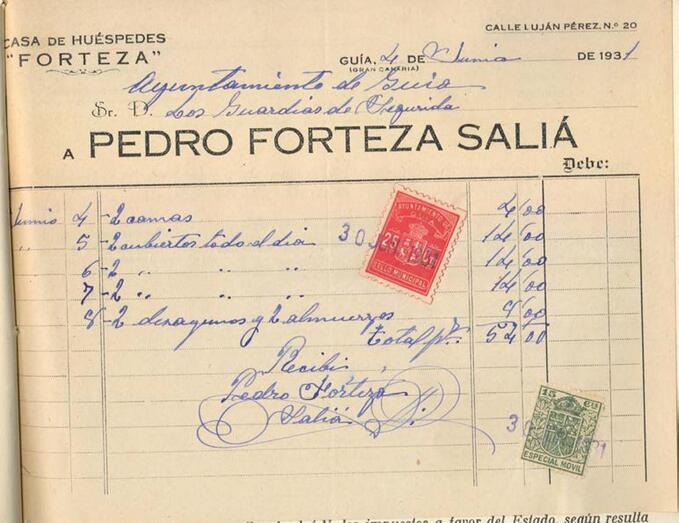 CASA DE HUÉSPEDES
"FORTEZA"
CALLE LUJÁN PÉREZ, N.º 20
GUÍA, 4 DE Junio DE 1931
(GRAN CANARIA)
Ayuntamiento de Guia
Sr. D. Los Guardias de Segurida
A PEDRO FORTEZA SALIÁ
Debe:
Junio 4 - 2 camas 4 00
" 5 - 2 cubiertos todo el dia 14 00
6 - 2 " " " 14 00
7 - 2 " " " 14 00
8 - 2 desayunos y 2 almuerzos 8 00
Total pts. 54 00
Recibi
Pedro Forteza
Saliá
AYUNTAMIENTO DE
GUIA
25
SELLO MUNICIPAL
30
15 CTS
ESPECIAL MÓVIL
3
impuestos a favor del Estado, según resulta